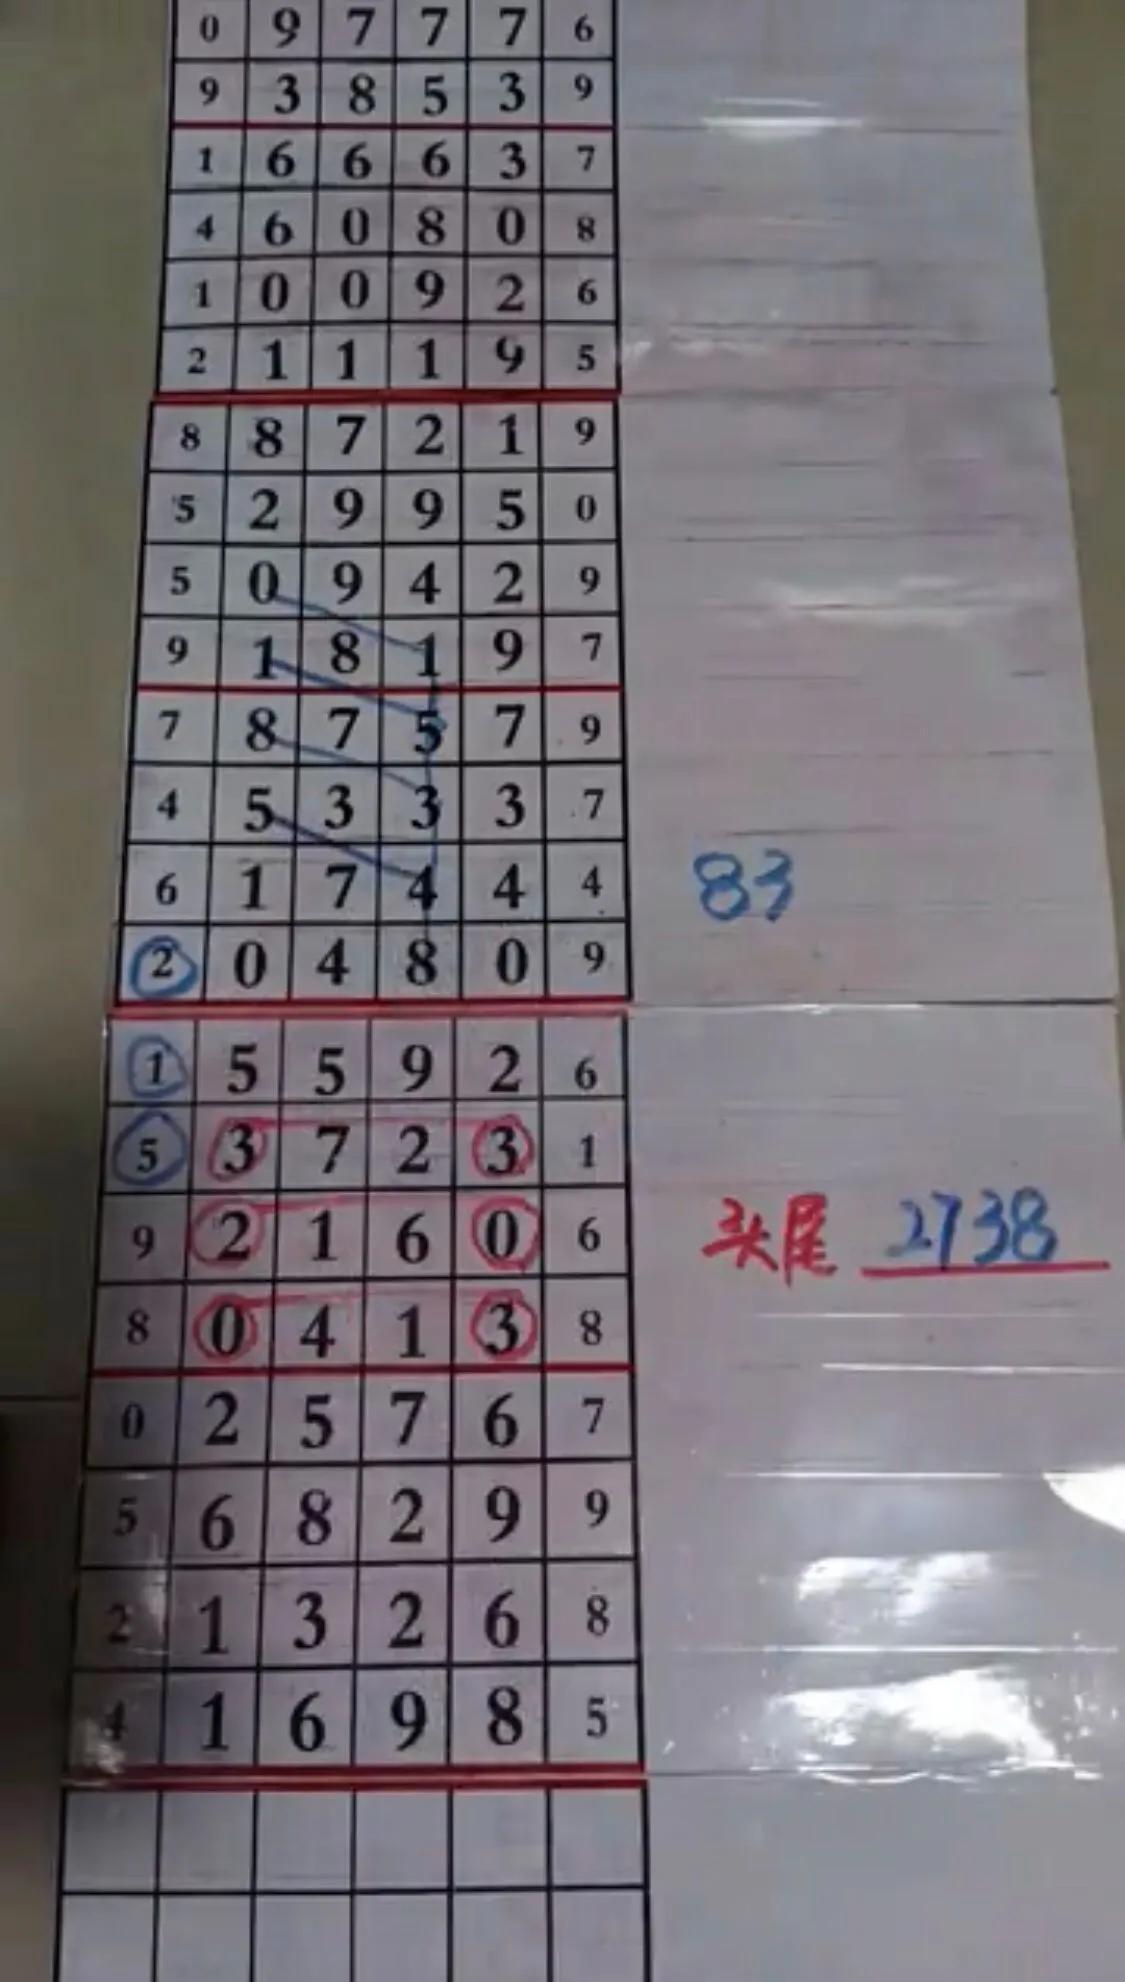 0 9 7 7 7 6
9 3 8 5 3 9
1 6 6 6 3 7
4 6 0 8 0 8
1 0 0 9 2 6
2 1 1 1 9 5
8 8 7 2 1 9
5 2 9 9 5 0
5 0 9 4 2 9
9 1 8 1 9 7
7 8 7 5 7 9
4 5 3 3 3 7
6 1 7 4 4 4 83
2 0 4 8 0 9
1 5 5 9 2 6
5 3 7 2 3 1
9 2 1 6 0 6 头尾 2738
8 0 4 1 3 8
0 2 5 7 6 7
5 6 8 2 9 9
2 1 3 2 6 8
4 1 6 9 8 5